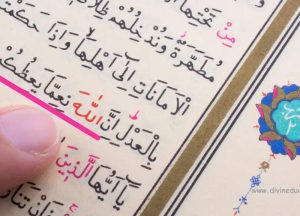 مِنْ تَحْتِهَا
مُطَهَّرَةٌ وَنُدْخِلُهُمْ ظِلًّا
الْاَمَانَاتِ اِلٰٓى اَهْلِهَا وَاِذَا حَكَمْتُمْ
بِالْعَدْلِ اِنَّ اللّٰهَ نِعِمَّا يَعِظُكُمْ
يَٓا اَيُّهَا الَّذ۪ينَ
www.divinedu